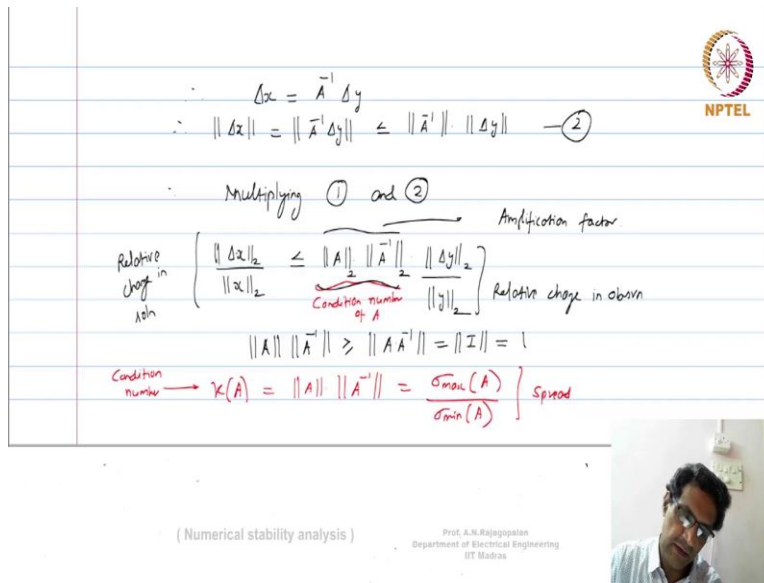 NPTEL
∴ Δx = A⁻¹ Δy
∴ ||Δx|| = ||A⁻¹Δy|| ≤ ||A⁻¹|| · ||Δy|| — ②
Multiplying ① and ②
Amplification factor
Relative change in soln { ||Δx||₂ / ||x||₂ ≤ ||A||₂ · ||A⁻¹||₂ · ||Δy||₂ / ||y||₂ } Relative change in obsvn
Condition number of A
||A|| ||A⁻¹|| ≥ ||A A⁻¹|| = ||I|| = 1
Condition number → K(A) = ||A|| · ||A⁻¹|| = σmax(A) / σmin(A) } Spread
( Numerical stability analysis )
Prof. A.N.Rajagopalan
Department of Electrical Engineering
IIT Madras